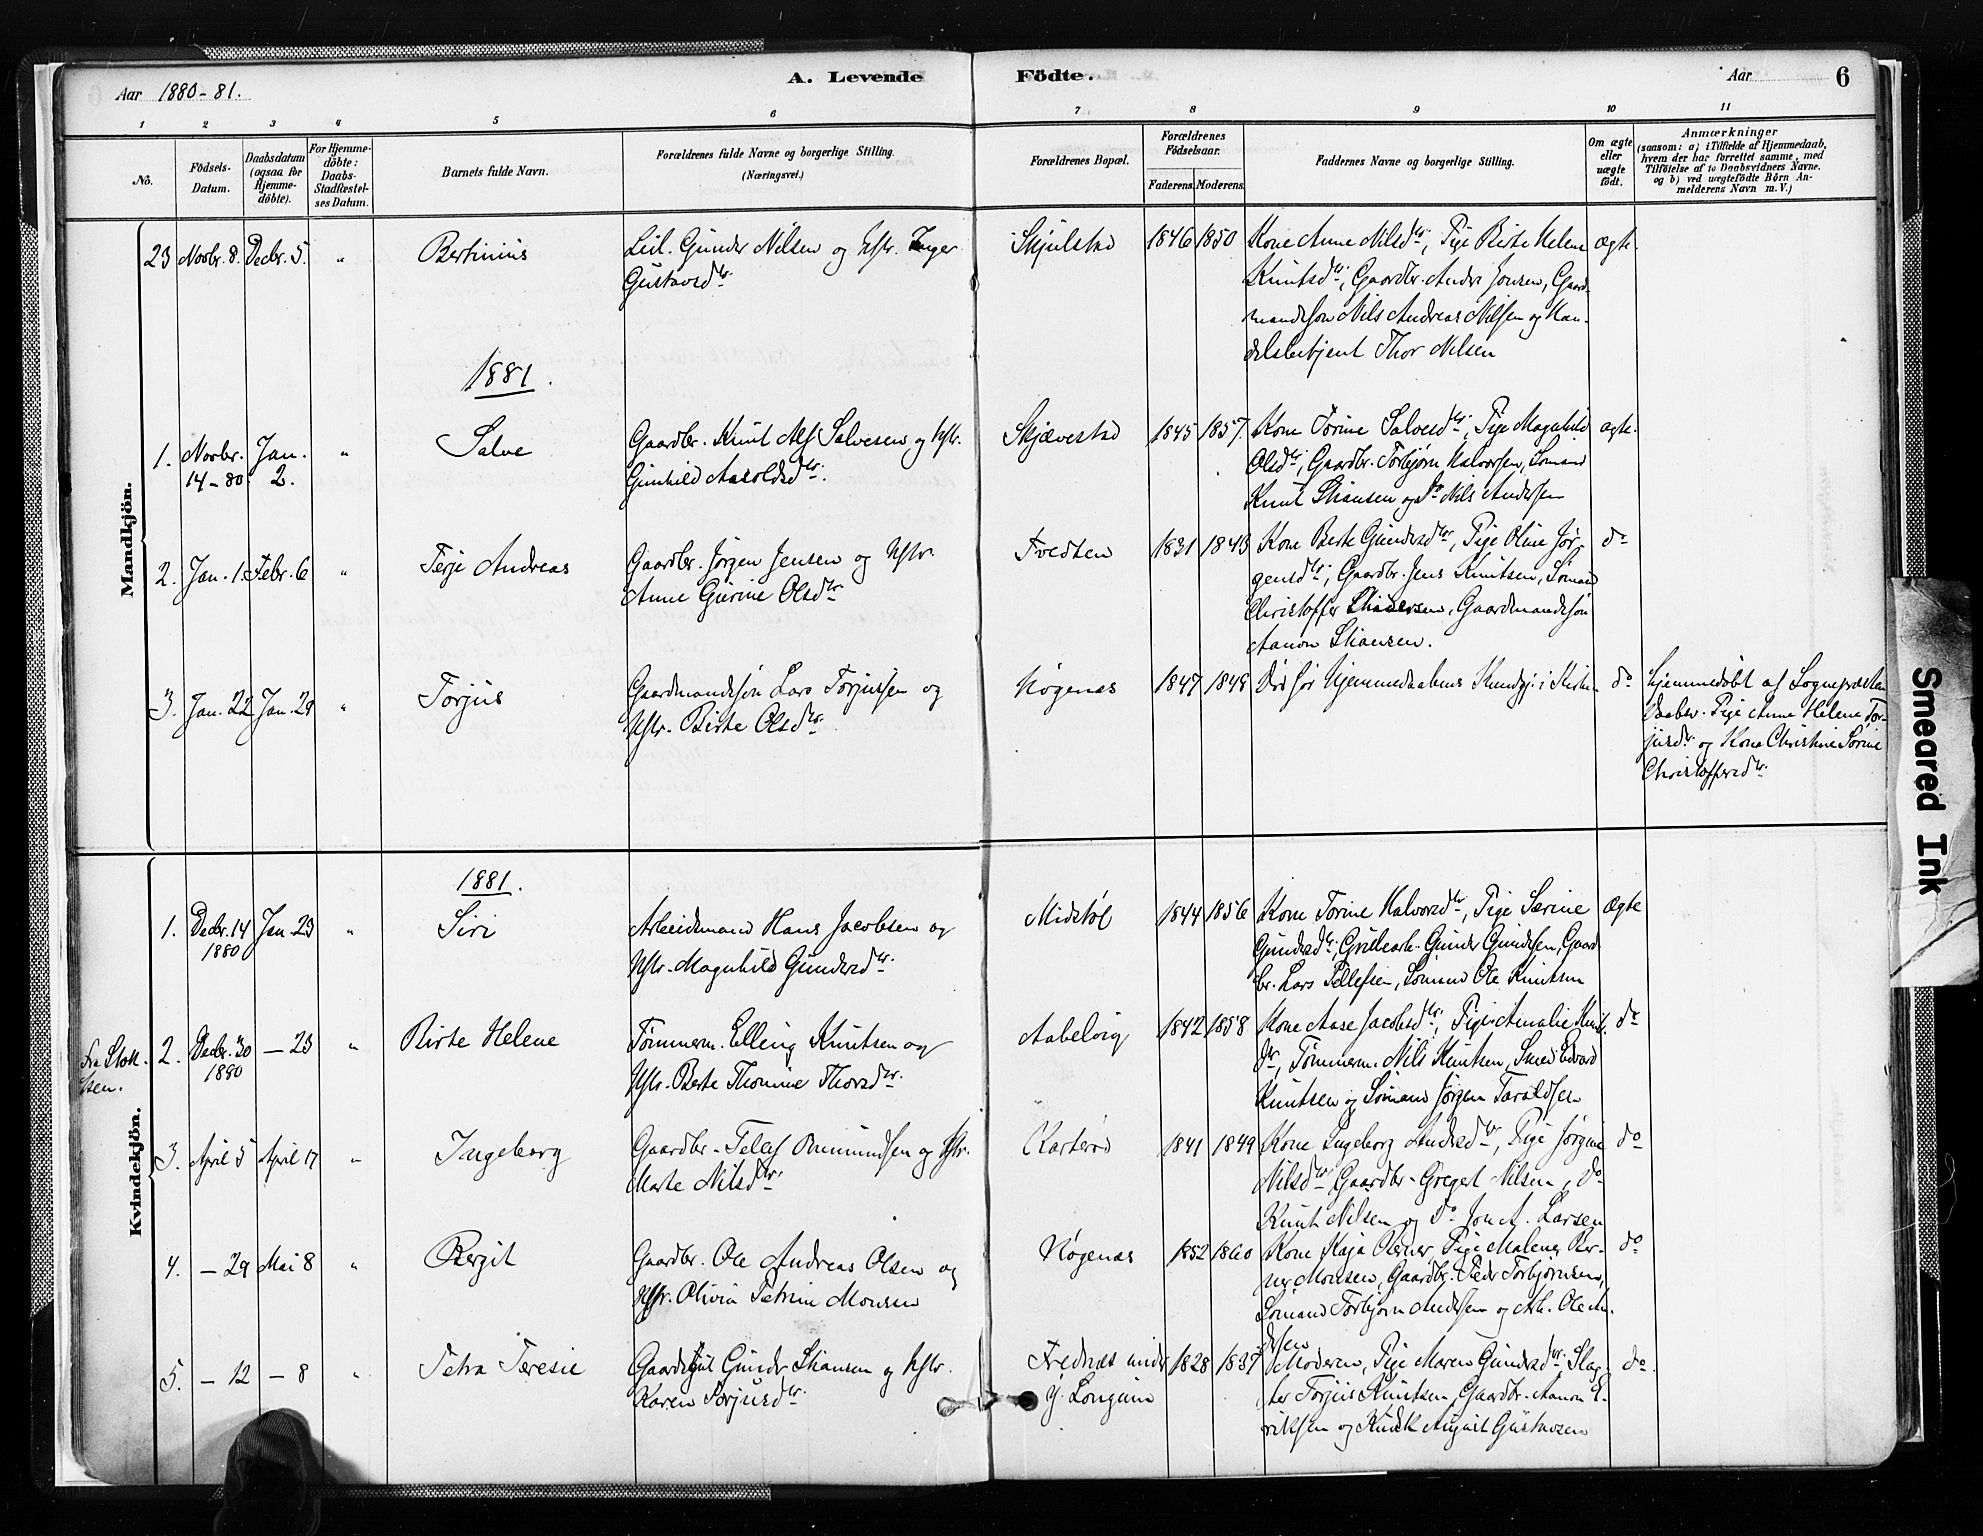 Aar 1880-81.
A. Levende Födte.
Aar 6
1 2 3 4 5 6 7 8 9 10 11
No.
Födsels-Datum.
Daabsdatum (ogsaa for Hjemmedöbte).
For Hjemmedöbte: Daabs-Stadfæstelses Datum.
Barnets fulde Navn.
Forældrenes fulde Navne og borgerlige Stilling.
(Næringsvei.)
Forældrenes Bopæl.
Forældrenes Födselsaar.
Faderens. Moderens.
Faddernes Navne og borgerlige Stilling.
Om ægte eller uægte födt.
Anmærkninger
(saasom: a) i Tilfælde af Hjemmedaab, hvem der har forrettet samme, med Tilföielse af to Daabsvidners Navne. og b) ved uægtefödte Börn Anmelderens Navn m. V.)
Mandkjön.
23 Novbr. 8. Decbr. 5. " Bertinius
Leil. Gunder Nilsen og Hstr. Inger
Gustavsdtr.
Skjulstad 1846 1850
Kone Anne Nilsdtr, Pige Birte Helene
Knutsdtr, Gaardbr. Anders Jonsen, Gaard-
mandssøn Nils Andreas Nilsen og Han-
delsbetjent Thor Nilsen
ægte
1881.
1. Novbr. 14-80 Jan. 2. " Salve
Gaardbr. Knut Alf Salvesen og Hstr.
Gunhild Aasoldsdtr.
Skjævestad 1845 1857.
Kone Torine Salvesdtr, Pige Magnhild
Olsdtr, Gaardbr. Torbjørn Halvorsen, Sømand
Knut Stiansen og do Nils Andersen
ægte
2. Jan. 1. Febr. 6 " Terje Andreas
Gaardbr. Jørgen Jensen og Hstr.
Anne Gurine Olsdtr
Tvedten 1831 1843
Kone Berte Gundersdtr, Pige Oline Jør-
gensdtr, Gaardbr. Jens Knutsen, Sømand
Christoffer Stiansen, Gaardmandssøn
Aanon Stiansen.
do
3. Jan. 22 Jan. 29 " Torjus
Gaardmandssøn Lars Torjussen og
Hstr. Birte Olsdtr.
Høgenas 1847 1848
Død før Hjemmedaabens Kundgj. i Kirken
do
Hjemmedøbt af Sognepræsten
Daaber. Pige Anne Helene Tor-
jusdtr og Kone Christine Sørine
Christoffersdtr.
Kvindekjön.
1881.
1. Decbr. 14 1880 Jan. 23 " Siri
Arbeidsmand Hans Jacobsen og
Hstr. Magnhild Gundersdtr.
Midtbøl 1844 1856
Kone Torine Halvorsdtr, Pige Serine
Gundersdtr, Grubearb. Gunder Gundersen, Gaard
br. Lars Tellefsen, Sømand Ole Knutsen
Ægte
Fra Stok-
sten.
2. Decbr. 30 1880 - 23 " Birte Helene
Tømmerm. Elling Knutsen og
Hstr. Berte Thomine Thorsdtr.
Aabelvig 1842 1858
Kone Aase Jacobsdtr, Pige Amalie Knuts
dtr, Tømmerm. Nils Knutsen, Smed Edvard
Knutsen og Sømand Jørgen Taraldsen
do
3. April 5 April 17 " Ingeborg
Gaardbr. Tellef Omundsen og Hstr.
Marte Nilsdtr.
Karterød 1841 1849
Kone Ingeborg Andersdtr, Pige Jørgine
Nilsdtr, Gaardbr. Gregert Nilsen, do
Knut Nilsen og do Jon A. Larsen
do
4. - 29 Mai 8 " Bergit
Gaardbr. Ole Andreas Olsen og
Hstr. Olivia Petrine Monsen
Høgenas 1852 1860
Kone Kaja Berner, Pige Malene Ber-
ner Monsen, Gaardbr. Peder Torbjørnsen,
Sømand Torbjørn Andersen og Arb. Ole An-
dersen
do
5. - 12 - 8 " Petra Teresie
Gunder Stiansen og Hstr.
Karen Torjusdtr.
Frednæs under
y. Longum
1828 1837
Moderen, Pige Maren Gundersdtr, Slag-
ter Torjus Knutsen, Gaardbr. Aanon E-
riksen og Knut August Gustavsen
do.
Smeared Ink